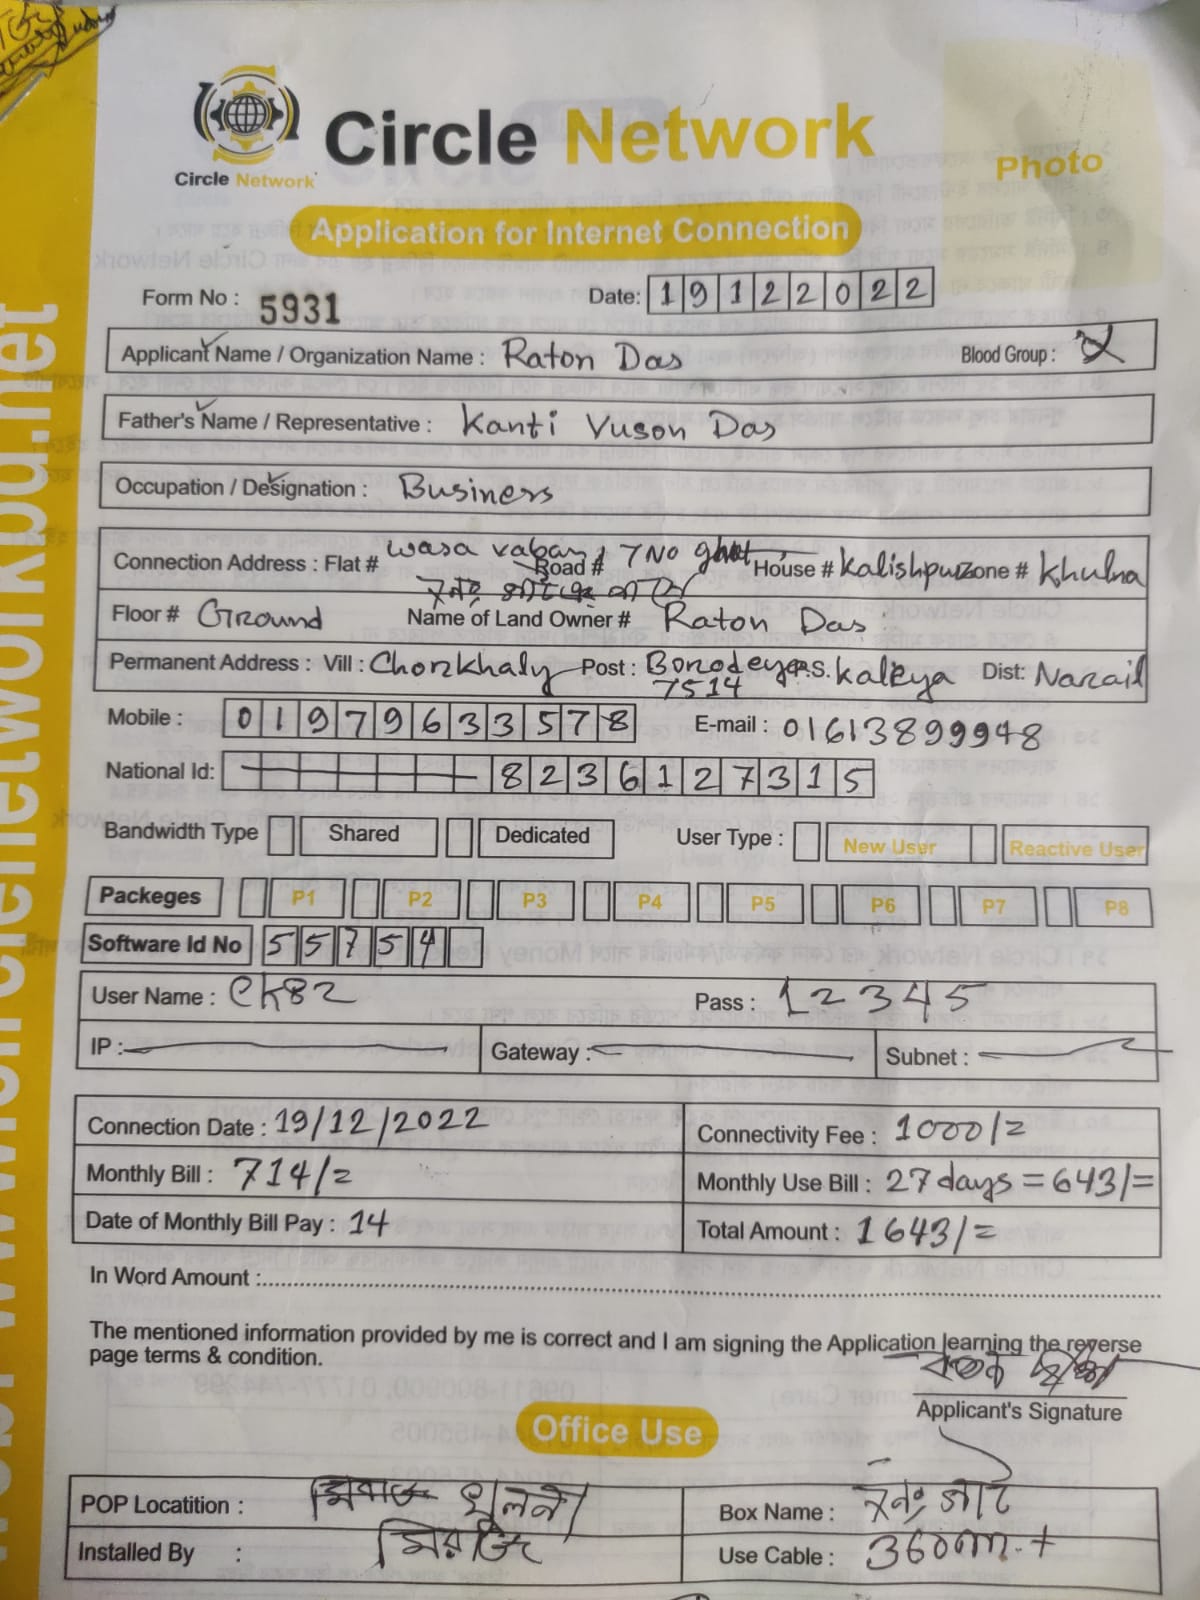 Circle Network
Circle Network
Photo
Application for Internet Connection
Form No : 5931 Date: 19122022
Applicant Name / Organization Name : Raton Das Blood Group :
Father's Name / Representative : Kanti Vuson Das
Occupation / Designation : Business
Connection Address : Flat # wasa vaban, Road # 7 No ghat House # Kalishpur Zone # Khulna
Floor # Ground Name of Land Owner # Raton Das
Permanent Address : Vill : Chorkhaly Post : Borodeyea P.S. Kaleya Dist: Narail
7514
Mobile : 01979633578 E-mail : 01613899948
National Id: 8236127315
Bandwidth Type Shared Dedicated User Type : New User Reactive User
Packeges P1 P2 P3 P4 P5 P6 P7 P8
Software Id No 55754
User Name : CK82 Pass : 12345
IP : Gateway : Subnet :
Connection Date : 19/12/2022 Connectivity Fee : 1000/=
Monthly Bill : 714/= Monthly Use Bill : 27 days = 643/=
Date of Monthly Bill Pay : 14 Total Amount : 1643/=
In Word Amount :
The mentioned information provided by me is correct and I am signing the Application learning the reverse
page terms & condition.
Applicant's Signature
Office Use
POP Locatition : খুলনা Box Name : ৭নং ঘাট
Installed By : মিরাজ Use Cable : 360m.+